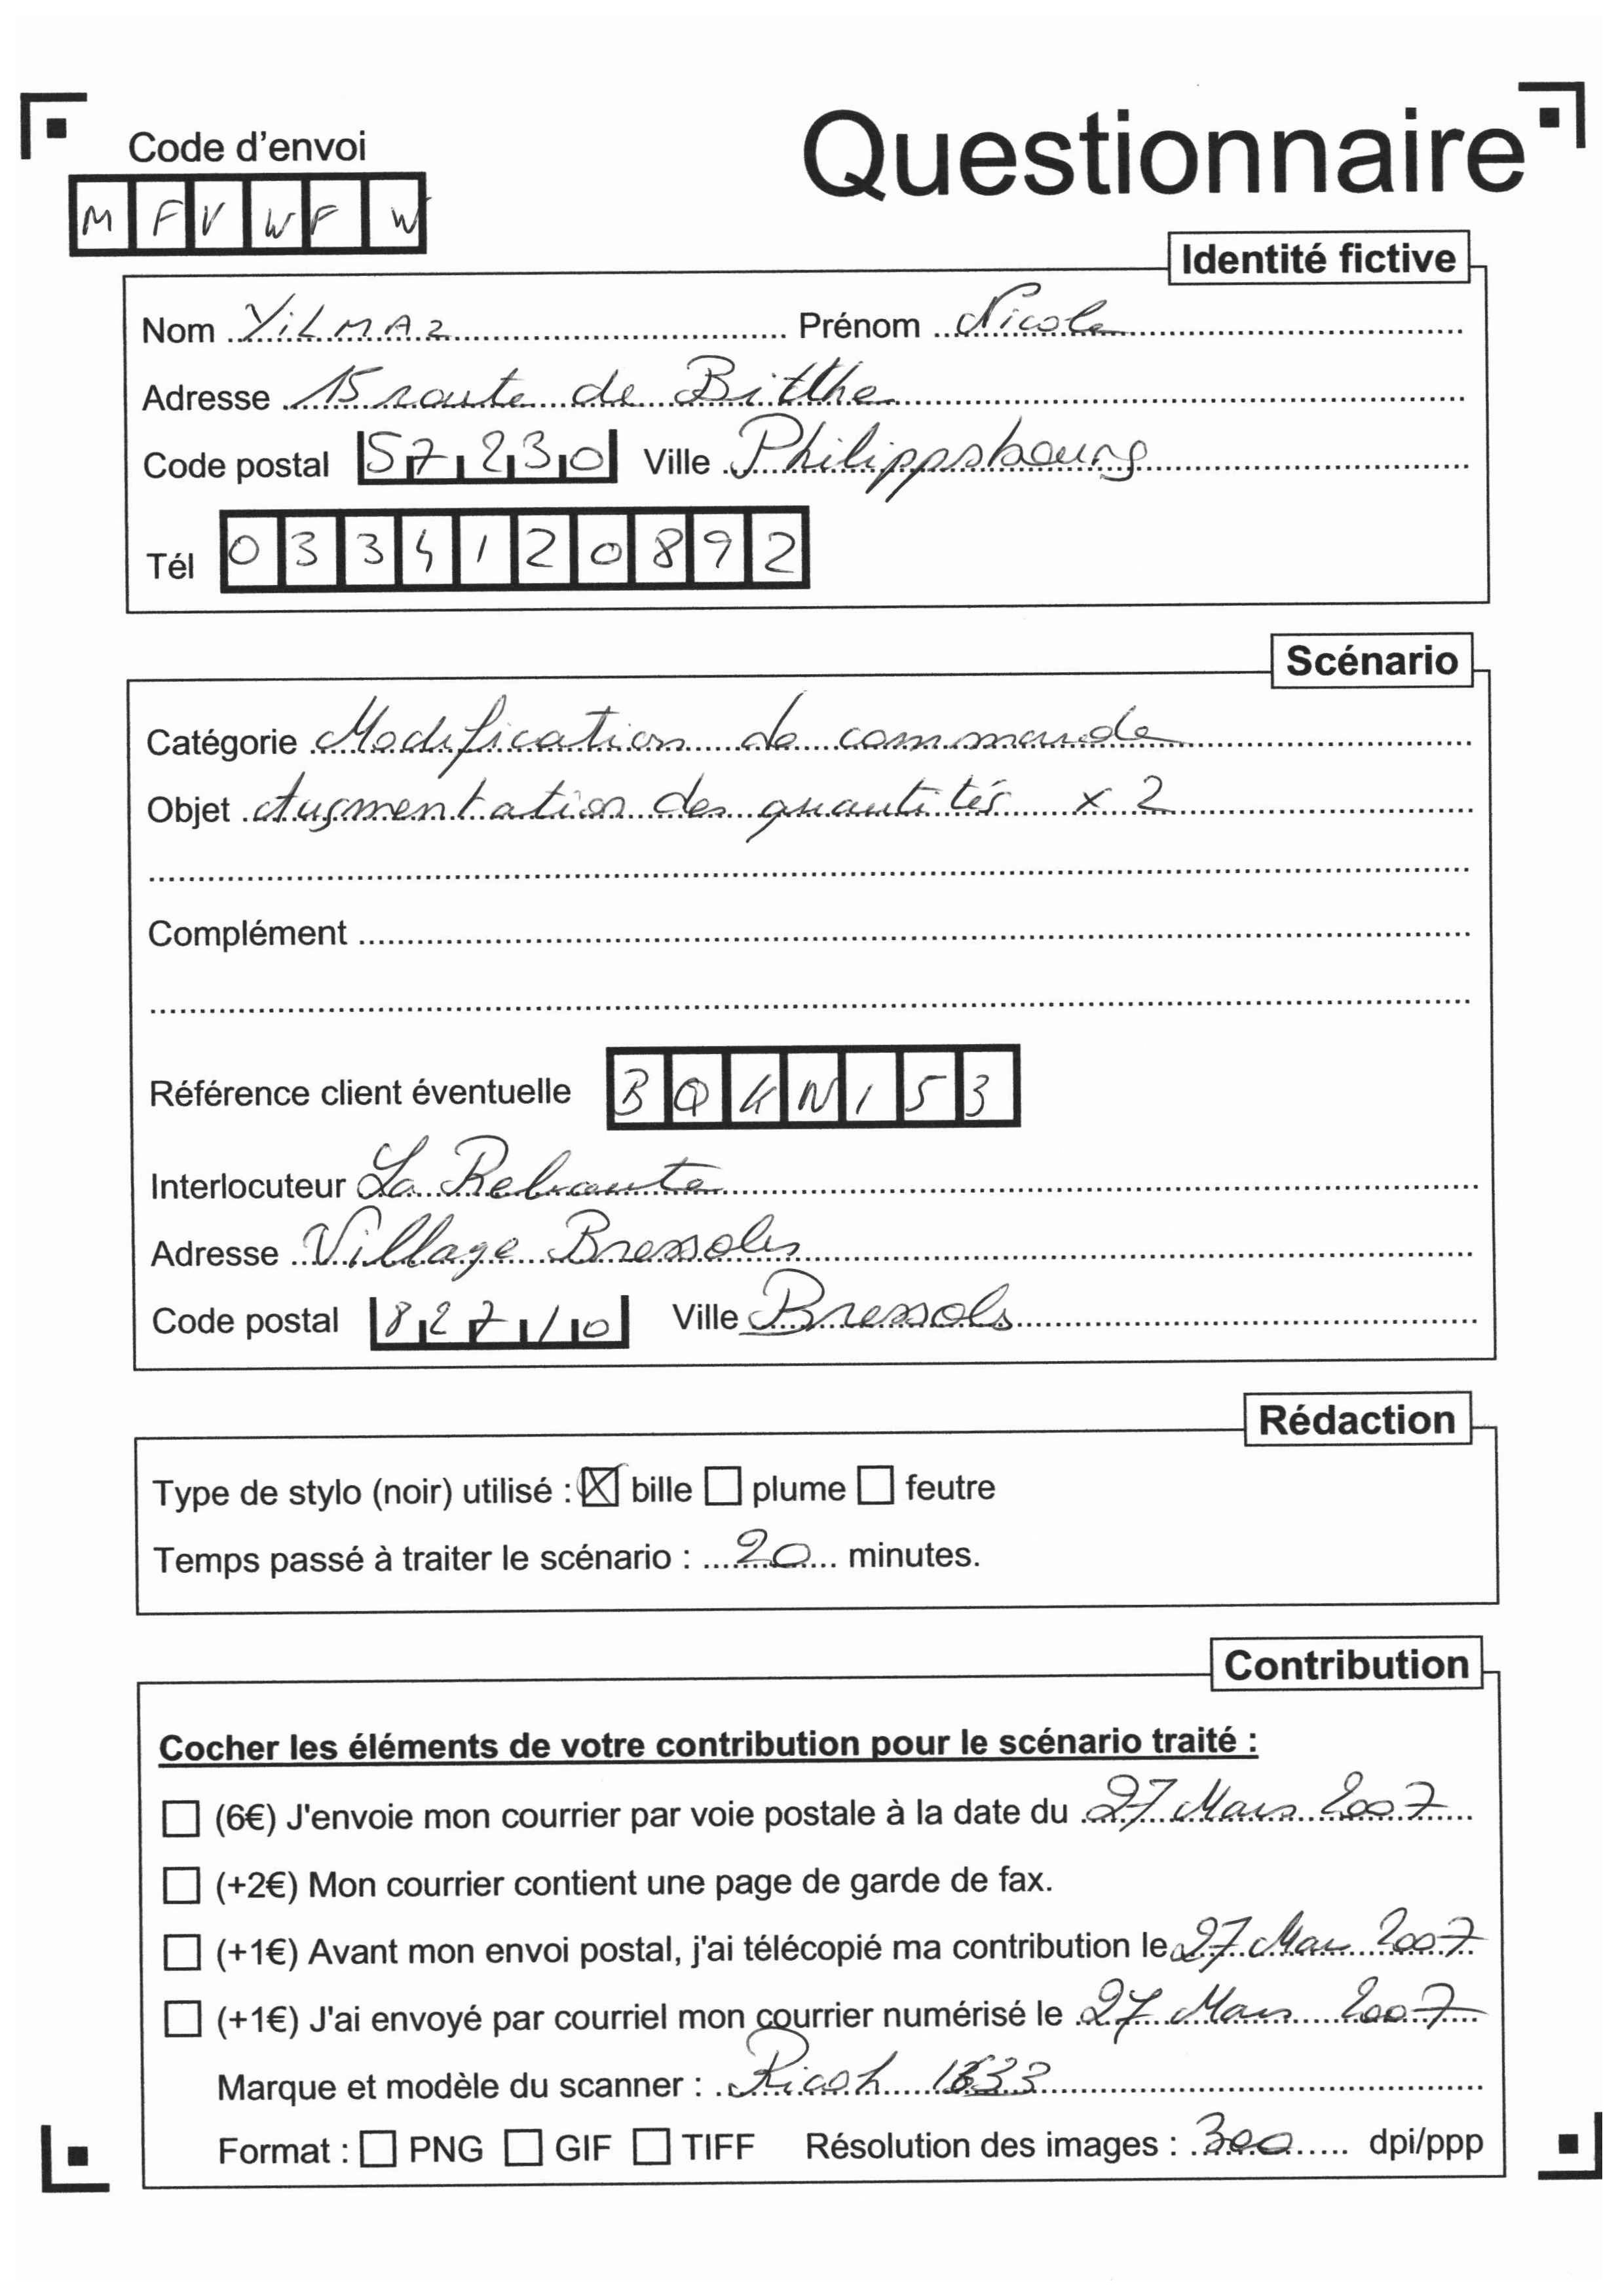 Code d'envoi
Questionnaire
M F V W F W
Identité fictive
Nom YiLMAz Prénom Nicole
Adresse 15 route de Bitthe
Code postal 57230 Ville Philippsbourg
Tél 0334120892
Scénario
Catégorie Modification de commande
Objet Augmentation des quantités x 2
Complément
Référence client éventuelle BQKN153
Interlocuteur La
Adresse Village Bressols
Code postal 82710 Ville Bressols
Rédaction
Type de stylo (noir) utilisé : bille plume feutre
Temps passé à traiter le scénario : 20 minutes.
Contribution
Cocher les éléments de votre contribution pour le scénario traité :
(6€) J'envoie mon courrier par voie postale à la date du 27 Mars 2007
(+2€) Mon courrier contient une page de garde de fax.
(+1€) Avant mon envoi postal, j'ai télécopié ma contribution le 27 Mars 2007
(+1€) J'ai envoyé par courriel mon courrier numérisé le 27 Mars 2007
Marque et modèle du scanner : Ricoh
Format : PNG GIF TIFF Résolution des images : 300 dpi/ppp